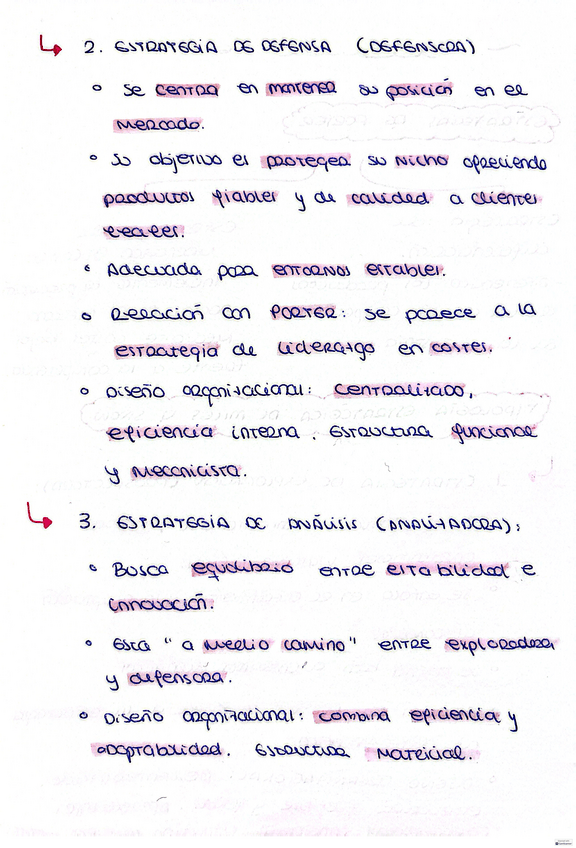 2. ESTRATEGIA DE DEFENSA (DEFENSORA)
• Se centra en mantener su posición en el
mercado.
• Su objetivo es proteger su nicho ofreciendo
productos fiables y de calidad a clientes
leales.
• Adecuada para entornos estables.
• Relación con PORTER: se parece a la
estrategia de liderazgo en costes.
• Diseño organizacional: centralizado,
eficiencia interna. Estructura funcional
y mecanicista.
3. ESTRATEGIA DE ANÁLISIS (ANALIZADORA):
• Busca equilibrio entre estabilidad e
innovación.
• Está "a medio camino" entre exploradora
y defensora.
• Diseño organizacional: combina eficiencia y
adaptabilidad. Estructura matricial.